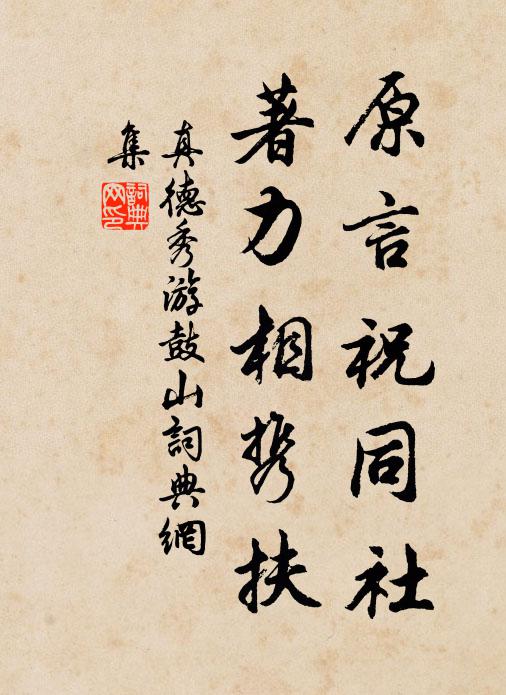 原言祝同社
著力相携扶
真德秀游鼓山詞典網
集
詞典
网印